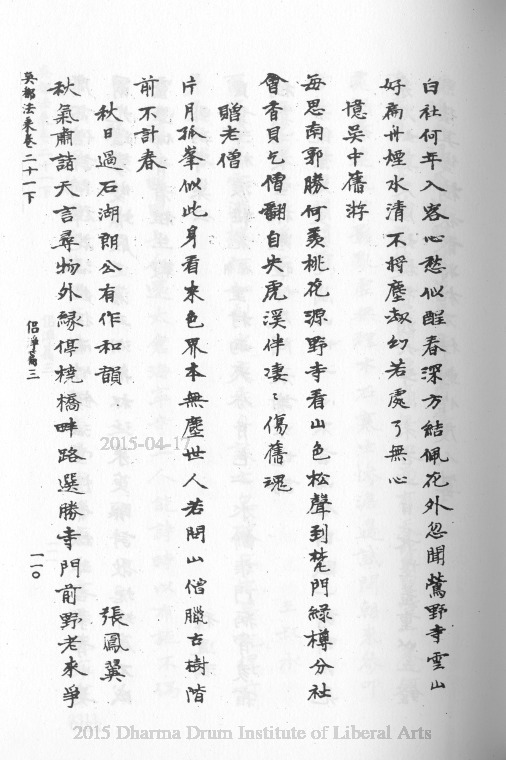 白社何年入客心愁似醒春深方結佩花外忽聞鶯野寺雲山
好扁舟煙水清不將塵劫幻若處了無心
憶吳中舊游
每思南郭勝何羨桃花源野寺看山色松聲到梵門綠樽分社
會香貝乞僧翻自失虎溪伴淒〻傷舊魂
贈老僧
片月孤峯似此身看來色界本無塵世人若問山僧臘古樹階
前不計春
秋日過石湖朗公有作和韻 張鳳翼
秋氣肅諸天言尋物外緣停橈橋畔路選勝寺門前野老來爭
吳都法乘卷二十一下 侶淨篇三 一一〇
2015-04-17
2015 Dharma Drum Institute of Liberal Arts